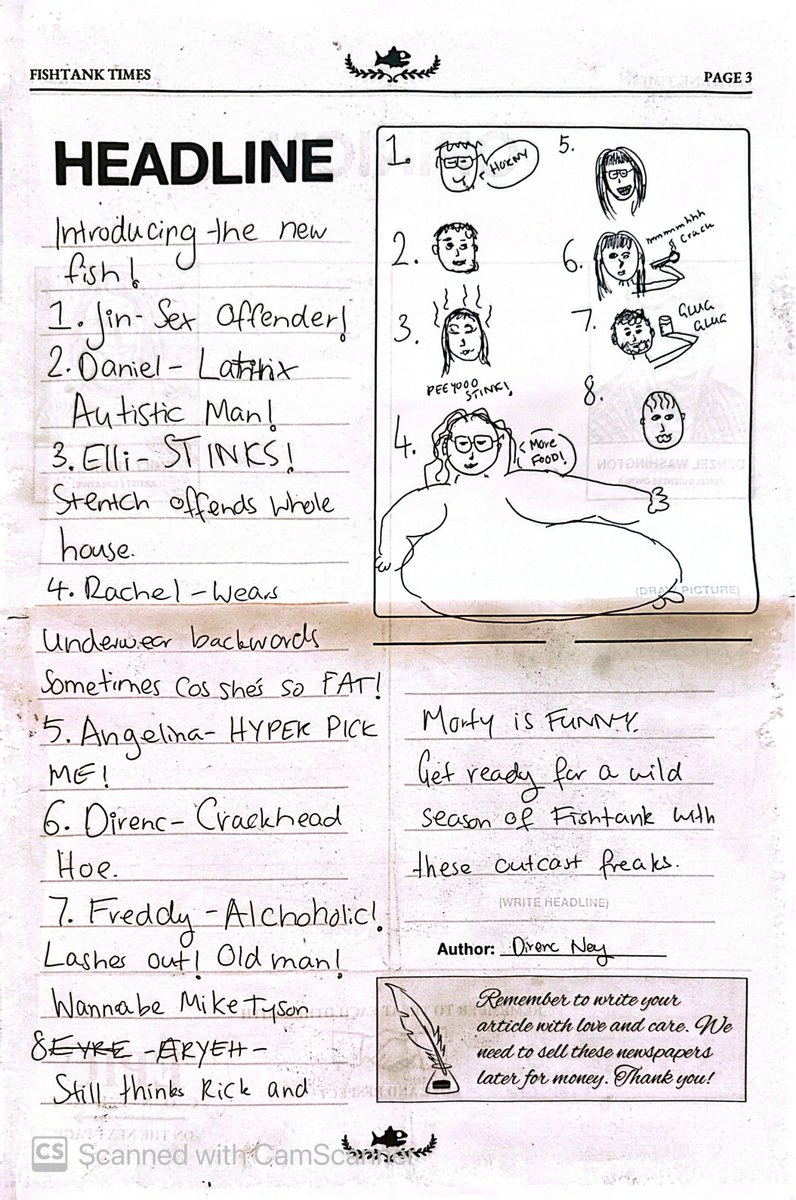 FISHTANK TIMES
PAGE 3
HEADLINE
Introducing the new
fish!
1. Jin- Sex Offender!
2. Daniel -
Autistic Man!
3. Elli- STINKS!
Stentch offends whole
house.
4. Rachel - Wears
Underwear backwords
Sometimes cos she's so FAT!
5. Angelina- HYPER PICK
ME!
6. Direnc- Crackhead
Hoe.
7. Freddy - Alchoholic!
Lashes out! Old man!
Wannabe Mike Tyson
8 EYRE - ARYEH -
Still thinks Rick and
1.
HORNY
2.
3.
PEEYOOO
STINK!
4.
More
FOOD!
5.
6.
mmmmhhh
crack
7.
GLUG
GLUG
8.
(DRAW PICTURE)
Morty is FUNNY.
Get ready for a wild
season of Fishtank with
these outcast freaks.
(WRITE HEADLINE)
Author: Direnc Ney
Remember to write your
article with love and care. We
need to sell these newspapers
later for money. Thank you!
DENZEL WASHINGTON
ON THE NEXT PAGE
CS Scanned with CamScanner